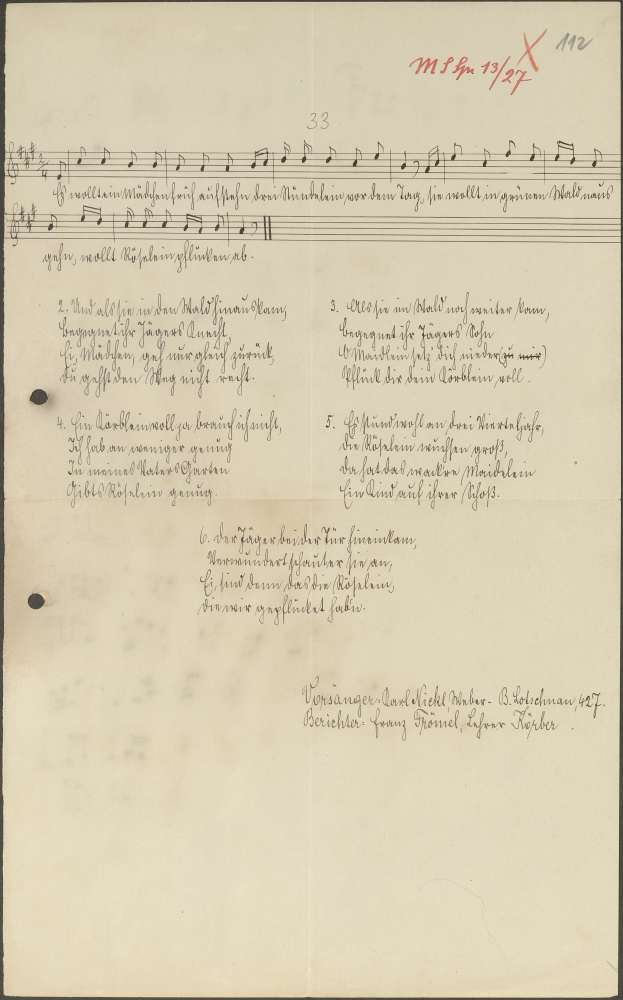 112
33
Es wollt ein Mädchen früh aufstehn drei Stündelein vor dem Tag, sie wollt in grünen Wald naus
gehn, wollt Röselein pflücken ab.
2. Und als sie in den Wald hinaus kam,
Begegnet ihr Jägers Knecht
Ei, Mädchen, geh nur gleich zurück,
Du gehst den Weg nicht recht.
3. Als sie im Wald noch weiter kam,
Begegnet ihr Jägers Sohn
O Maidlein setz dich nieder (zu mir)
Pflück dir dein Körblein voll.
4. Ein Körblein voll ja brauch ich nicht,
Ich hab an weniger genug
In meines Vaters Garten
Gibts Röselein genug.
5. Es stund wohl an drei Vierteljahr,
Die Röselein wuchsen groß,
Da hat das wackre Maidelein
Ein Kind auf ihrer Schoß.
6. Der Jäger bei der Tür hineinkam,
Verwundert schaut er sie an,
Ei, sind denn das die Röselein,
Die wir gepflücket hab'n.
Vorsänger: Karl Nickl, Weber - B. Lotschnau, 427.
Berichter: Franz Frömel, Lehrer Körber